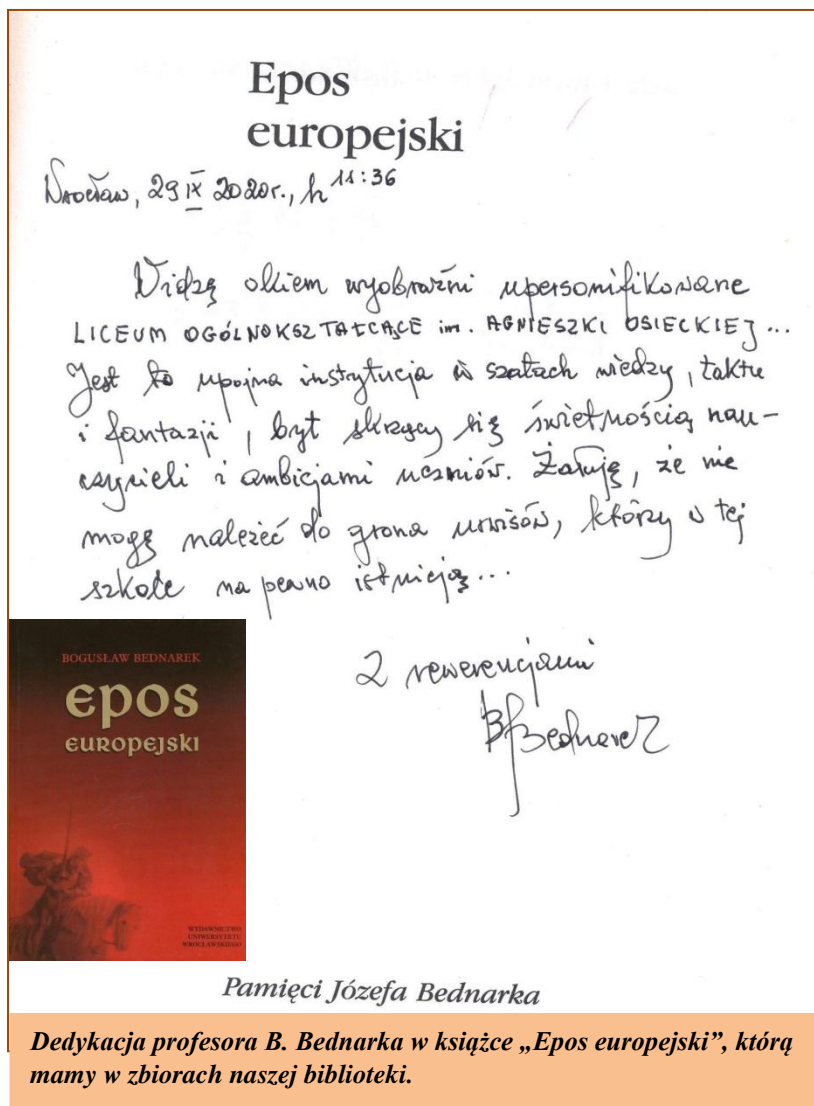 Epos
europejski
Wrocław, 29 IX 2020r., h 11:36
Widzę okiem wyobraźni upersonifikowane
LICEUM OGÓLNOKSZTAŁCĄCE im. AGNIESZKI OSIECKIEJ...
Jest to upojna instytucja w szatach wiedzy, taktu
i fantazji, byt skrzący się świetnością nau-
czycieli i ambicjami uczniów. Żałuję, że nie
mogę należeć do grona urwisów, którzy w tej
szkole na pewno istnieją...
Z rewerencjami
B Bednarek
BOGUSŁAW BEDNAREK
epos
europejski
WYDAWNICTWO
UNIWERSYTETU
WROCŁAWSKIEGO
Pamięci Józefa Bednarka
Dedykacja profesora B. Bednarka w książce „Epos europejski”, którą
mamy w zbiorach naszej biblioteki.